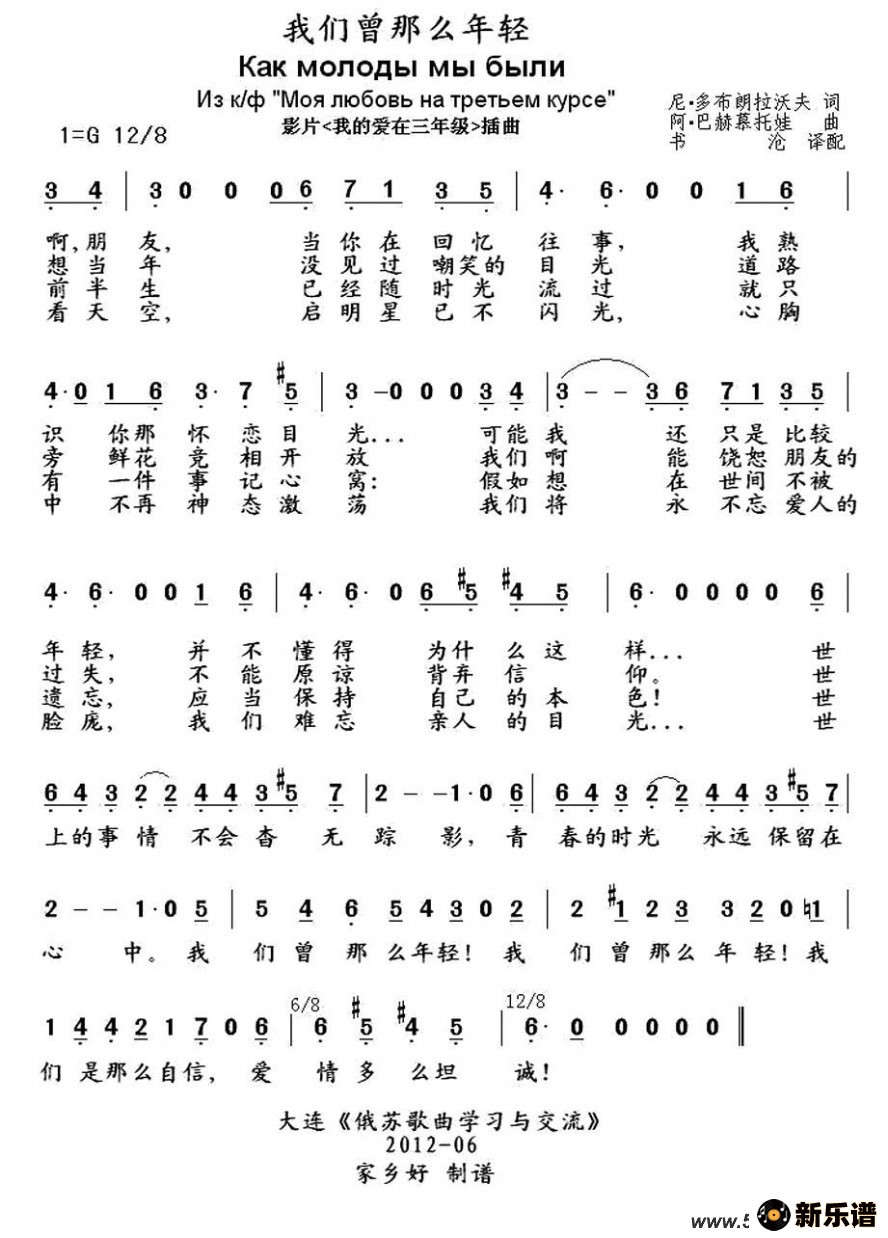 我们曾那么年轻
Как молоды мы были
Из к/ф "Моя любовь на третьем курсе"
影片<我的爱在三年级>插曲
1=G 12/8
尼·多布朗拉沃夫 词
阿·巴赫慕托娃 曲
书 沧 译配
3 4 | 3 0 0 0 6 7 1 3 5 | 4· 6· 0 0 1 6 |
啊,朋友, 当你在回忆往事, 我熟
想当年 没见过嘲笑的目光 道路
前半生 已经随时光流过 就只
看天空, 启明星已不闪光, 心胸
4·0 1 6 3· 7 #5 | 3 -0 0 0 3 4 | 3 - - 3 6 7 1 3 5 |
识你那怀恋目光... 可能我还只是比较
旁鲜花竞相开放 我们啊能饶恕朋友的
有一件事记心窝: 假如想在世间不被
中不再神态激荡 我们将永不忘爱人的
4· 6· 0 0 1 6 | 4· 6· 0 6 #5 #4 5 | 6· 0 0 0 0 6 |
年轻, 并不懂得为什么这样... 世
过失, 不能原谅背弃信仰。 世
遗忘, 应当保持自己的本色! 世
脸庞, 我们难忘亲人的目光... 世
6 4 3 2 2 4 4 3 #5 7 | 2 - -1·0 6 | 6 4 3 2 2 4 4 3 #5 7 |
上的事情不会杳无踪影, 青春的时光永远保留在
2 - - 1·0 5 | 5 4 6 5 4 3 0 2 | 2 #1 2 3 3 2 0 ♮1 |
心中。我们曾那么年轻! 我们曾那么年轻! 我
6/8 12/8
1 4 4 2 1 7 0 6 | 6 #5 #4 5 | 6· 0 0 0 0 0 ‖
们是那么自信, 爱情多么坦诚!
大连《俄苏歌曲学习与交流》
2012-06
家乡好 制谱
www.5
新乐谱